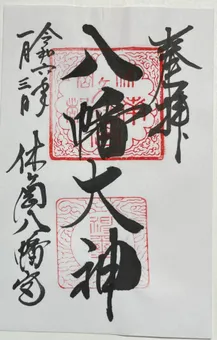 奉拝
八幡大神
令和六年
一月三日
八幡宮